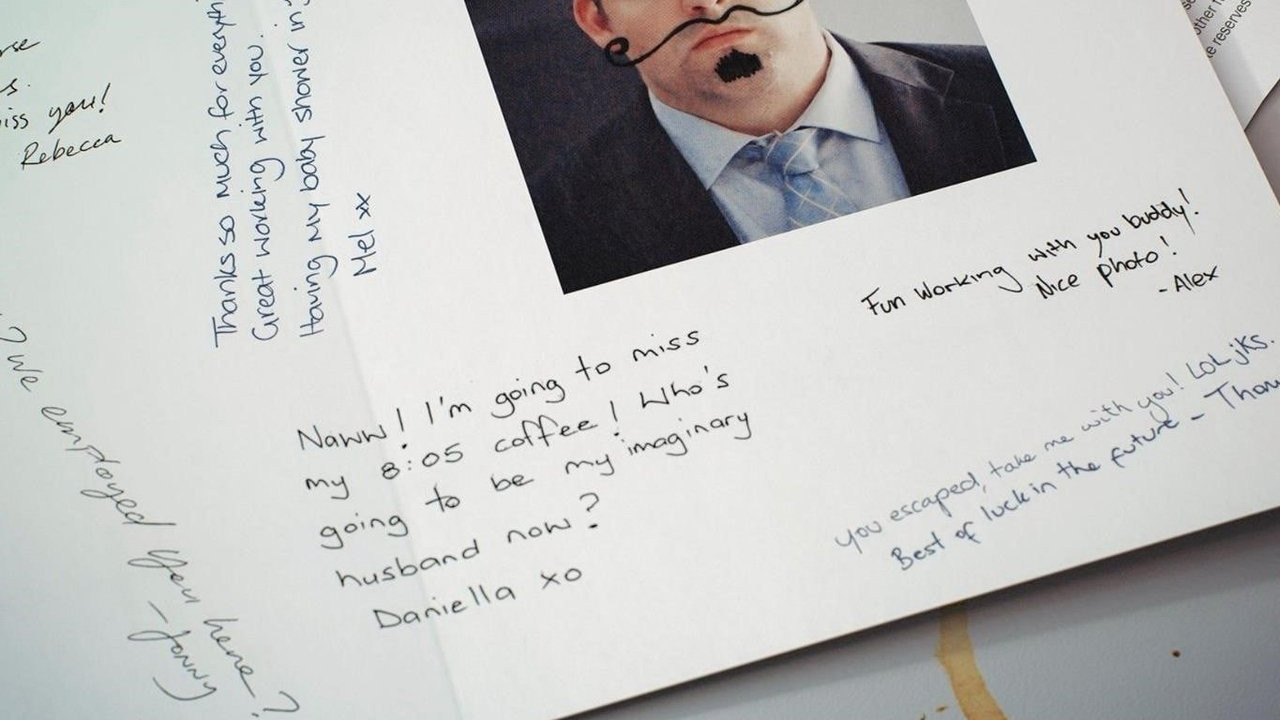 iss you!
Rebecca
Thanks so much for everyth
Great working with you.
Having My baby shower in
Mel xx
We employed you here?
- Jonny
Naww! I'm going to miss
my 8:05 coffee! Who's
going to be my imaginary
husband now?
Daniella xo
Fun working with you buddy!
Nice photo!
-Alex
you escaped, take me with you! LOL jks.
Best of luck in the future - Thom
other
reserves